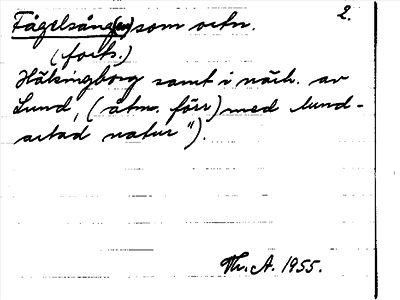 2.
Fågelsång(en) som ortn.
(forts.)
Hälsingborg samt i närh. av
Lund, (åtm. förr) med lund-
artad natur").
Th. A. 1955.